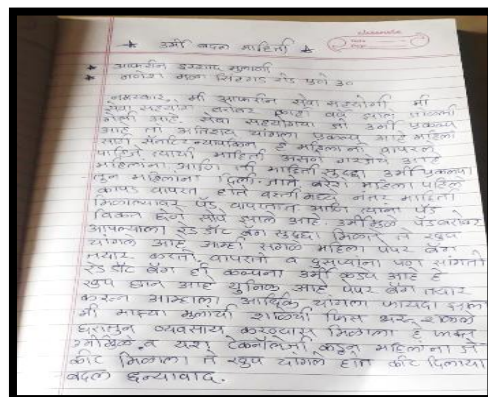 classmate
Date
Page
★ उर्मी बद्दल माहिती ★
★ आफरीन इरशाद मुलाणी
★ गणेश मळा सिंहगड रोड पुणे ३०
नमस्कार, मी आफरीन सेवा सहयोगी मी
सेवा सहयोग बरोबर वर्ष झाले
आहे. सेवा सहयोगचा जो उर्मी प्रकल्प
आहे तो अतिशय चांगला प्रकल्प आहे महिला
सॅनिटरी नॅपकिन हे महिलांनी वापरले
पाहिजे त्याची माहिती असणे गरजेचे आहे
महिलांना आणि ती माहिती सुद्धा उर्मी प्रकल्पा
तून महिलांना दिली जाते. बऱ्याच महिला पहिले
कापड वापरत होते वस्तीमध्ये नंतर माहिती
मिळाल्यावर पॅड वापरतात आणि त्यांना पॅड
विकत घेणं सोपे झाले आहे उर्मीमुळे पॅडबरोबर
आपल्याला रेड डॉट बॅग सुद्धा मिळते ते खुप
चांगले आहे आम्ही सगळे महिला पेपर बॅग
तयार करतो, वापरतो व दुसऱ्यांना पण सांगतो
रेड डॉट बॅग ही कल्पना उर्मी कडुन आहे हे
खुप छान आहे युनिक आहे पेपर बॅग तयार
करून आम्हाला आर्थिक चांगला फायदा झाला
मी माझ्या मुलांची शाळेची फिस भरू शकले
घरातुन व्यवसाय करण्यास मिळाला हे फक्त
उर्मीमुळे व यश टेक्नॉलॉजी कडुन महिलांना जे
कीट मिळाला ते खुप चांगले होते कीट दिल्या
बद्दल धन्यवाद.